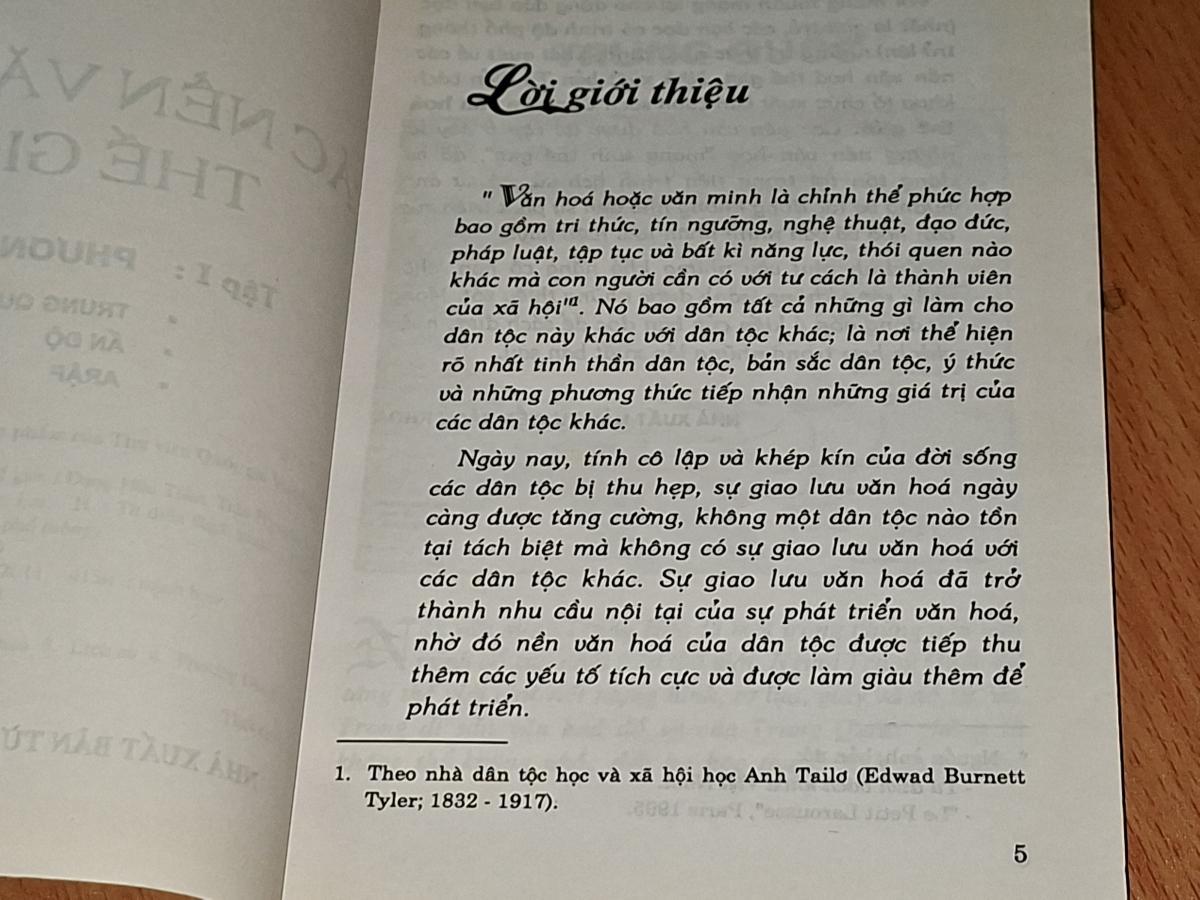 Lời giới thiệu
" Văn hoá hoặc văn minh là chỉnh thể phức hợp
bao gồm tri thức, tín ngưỡng, nghệ thuật, đạo đức,
pháp luật, tập tục và bất kì năng lực, thói quen nào
khác mà con người cần có với tư cách là thành viên
của xã hội"1. Nó bao gồm tất cả những gì làm cho
dân tộc này khác với dân tộc khác; là nơi thể hiện
rõ nhất tinh thần dân tộc, bản sắc dân tộc, ý thức
và những phương thức tiếp nhận những giá trị của
các dân tộc khác.
Ngày nay, tính cô lập và khép kín của đời sống
các dân tộc bị thu hẹp, sự giao lưu văn hoá ngày
càng được tăng cường, không một dân tộc nào tồn
tại tách biệt mà không có sự giao lưu văn hoá với
các dân tộc khác. Sự giao lưu văn hoá đã trở
thành nhu cầu nội tại của sự phát triển văn hoá,
nhờ đó nền văn hoá của dân tộc được tiếp thu
thêm các yếu tố tích cực và được làm giàu thêm để
phát triển.
1. Theo nhà dân tộc học và xã hội học Anh Tailơ (Edwad Burnett
Tyler; 1832 - 1917).
5